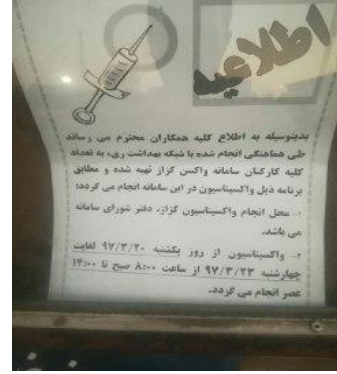 اطلاعیه
بدینوسیله به اطلاع کلیه همکاران محترم می رساند
طی هماهنگی انجام شده با شبکه بهداشت ری، به تعداد
کلیه کارکنان سامانه واکسن کزاز تهیه شده و مطابق
برنامه ذیل واکسیناسیون در این سامانه انجام می گردد:
۱- محل انجام واکسیناسیون کزاز، دفتر شورای سامانه
می باشد.
۲- واکسیناسیون از روز یکشنبه ۹۷/۳/۲۰ لغایت
چهارشنبه ۹۷/۳/۲۳ از ساعت ۸:۰۰ صبح تا ۱۴:۰۰
عصر انجام می گردد.